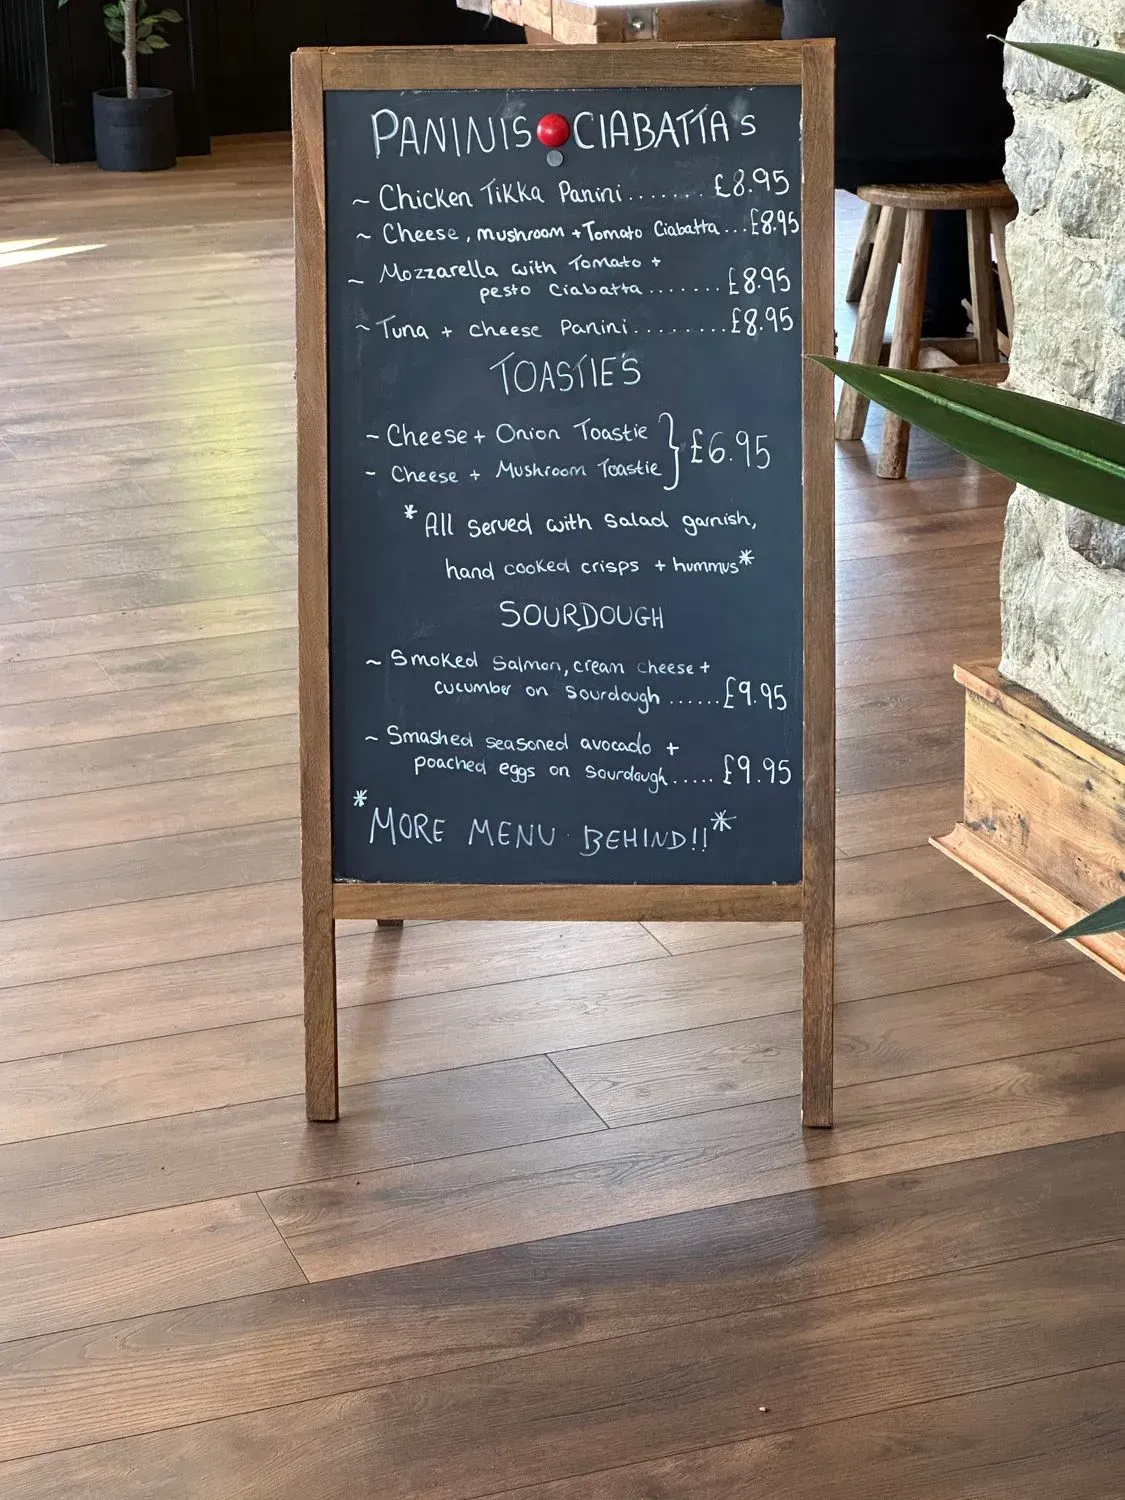 PANINIS CIABATTA's
~ Chicken Tikka Panini....... £8.95
~ Cheese, mushroom + Tomato Ciabatta ... £8.95
~ Mozzarella with Tomato +
pesto Ciabatta ....... £8.95
~ Tuna + cheese Panini ........ £8.95
TOASTIE'S
~ Cheese + Onion Toastie } £6.95
- Cheese + Mushroom Toastie
* All served with salad garnish,
hand cooked crisps + hummus *
SOURDOUGH
~ Smoked Salmon, cream cheese +
cucumber on sourdough ...... £9.95
~ Smashed seasoned avocado +
poached eggs on sourdough ..... £9.95
* MORE MENU BEHIND!! *